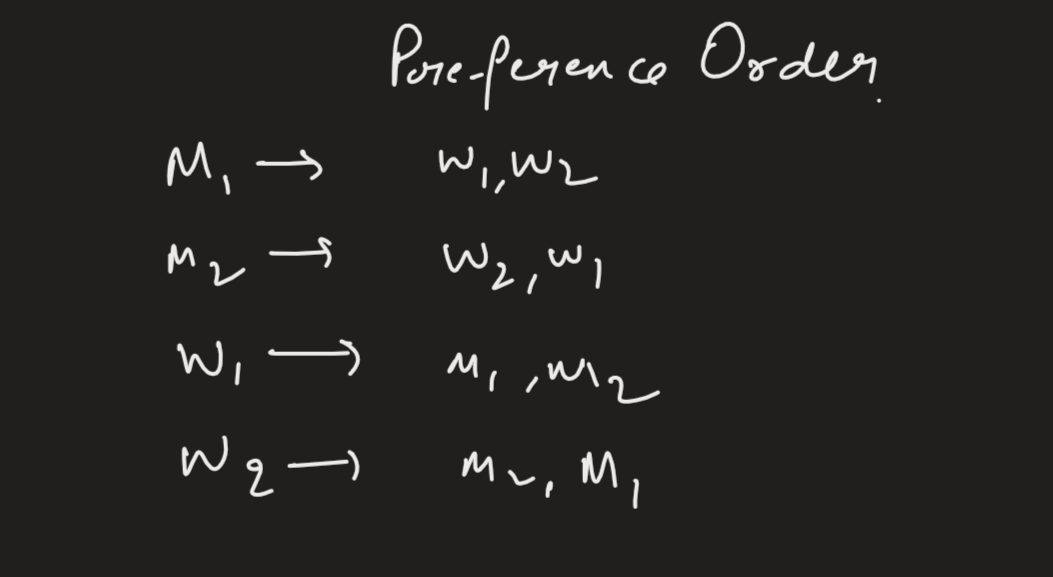 Preference Order.
M1 → W1, W2
M2 → W2, W1
W1 → M1, M2
W2 → M2, M1